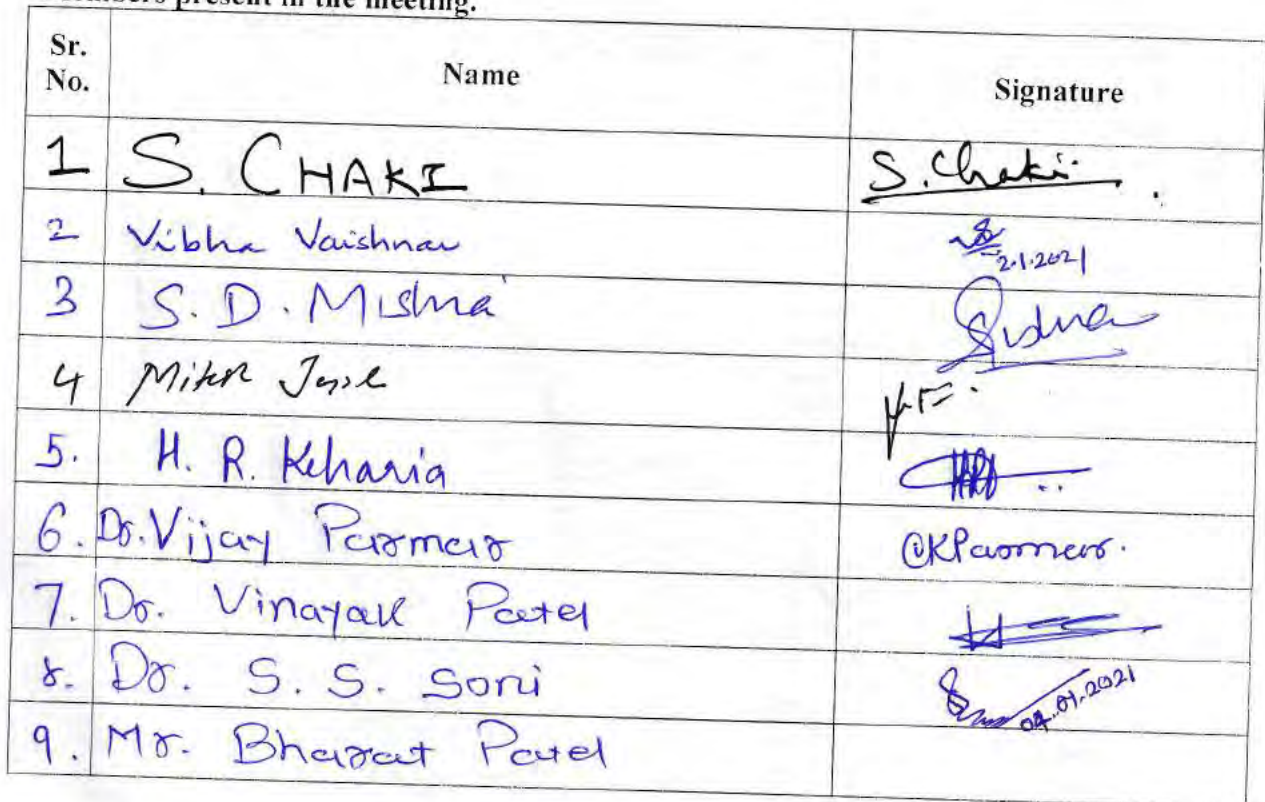 present in the meeting.
Sr. No. Name Signature
1 S. CHAKI S. Chaki
2 Vibha Vaishnav 2.1.2021
3 S. D. Mishra
4
5. H. R. Keharia
6. Dr. Vijay Parmar VKParmar.
7. Dr. Vinayak Patel
8. Dr. S. S. Soni 04.01.2021
9. Mr. Bharat Patel